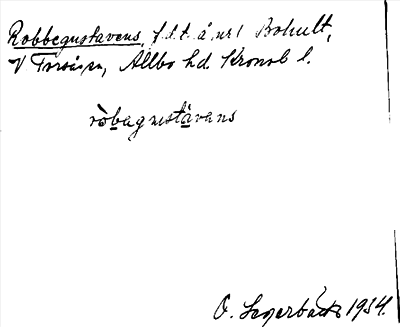 Robbegustavens, f.l.t. å nr 1 Bohult,
V Torsås sn, Allbo hd. Kronob l.
ròbagustàvans
O. Segerbäck 1934.